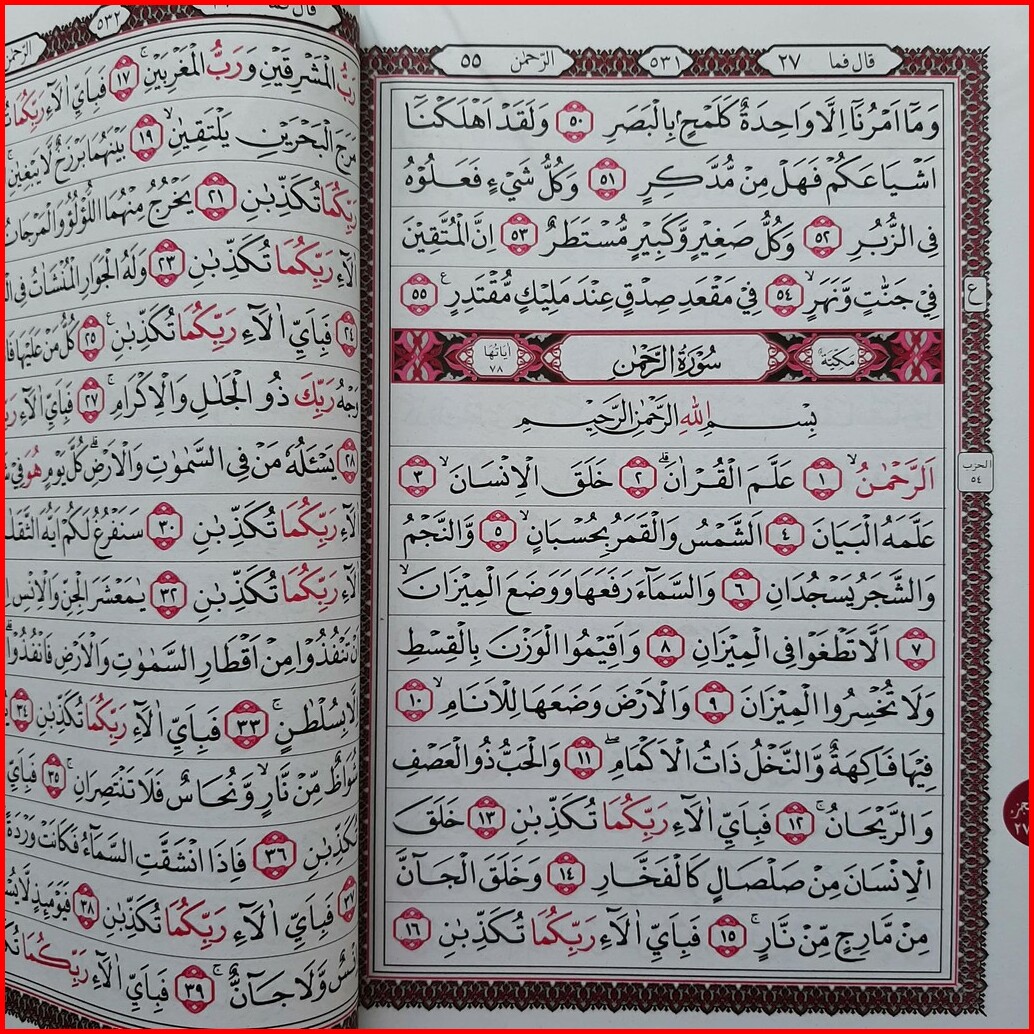 قال فما ٢٧
٥٣١
الرّحمٰن ٥٥
وَمَٓا اَمْرُنَٓا اِلَّا وَاحِدَةٌ كَلَمْحٍۭ بِالْبَصَرِ ٥٠ وَلَقَدْ اَهْلَكْنَٓا
اَشْيَاعَكُمْ فَهَلْ مِنْ مُّدَّكِرٍ ٥١ وَكُلُّ شَيْءٍ فَعَلُوْهُ
فِى الزُّبُرِ ٥٢ وَكُلُّ صَغِيْرٍ وَّكَبِيْرٍ مُّسْتَطَرٌ ٥٣ اِنَّ الْمُتَّقِيْنَ
فِيْ جَنّٰتٍ وَّنَهَرٍۙ ٥٤ فِيْ مَقْعَدِ صِدْقٍ عِنْدَ مَلِيْكٍ مُّقْتَدِرٍ ࣖ ٥٥
ع
مَكِّيَّةٌ
سُوْرَةُ الرَّحْمٰنِ
اٰيَاتُهَا ٧٨
بِسْمِ اللّٰهِ الرَّحْمٰنِ الرَّحِيْمِ
اَلرَّحْمٰنُۙ ١ عَلَّمَ الْقُرْاٰنَۗ ٢ خَلَقَ الْاِنْسَانَۙ ٣
الحزب ٥٤
عَلَّمَهُ الْبَيَانَ ٤ اَلشَّمْسُ وَالْقَمَرُ بِحُسْبَانٍۙ ٥ وَّالنَّجْمُ
وَالشَّجَرُ يَسْجُدَانِ ٦ وَالسَّمَآءَ رَفَعَهَا وَوَضَعَ الْمِيْزَانَۙ
٧ اَلَّا تَطْغَوْا فِى الْمِيْزَانِ ٨ وَاَقِيْمُوا الْوَزْنَ بِالْقِسْطِ
وَلَا تُخْسِرُوا الْمِيْزَانَ ٩ وَالْاَرْضَ وَضَعَهَا لِلْاَنَامِۙ ١٠
فِيْهَا فَاكِهَةٌ وَّالنَّخْلُ ذَاتُ الْاَكْمَامِۖ ١١ وَالْحَبُّ ذُو الْعَصْفِ
وَالرَّيْحَانُۚ ١٢ فَبِاَيِّ اٰلَاۤءِ رَبِّكُمَا تُكَذِّبٰنِ ١٣ خَلَقَ
الْاِنْسَانَ مِنْ صَلْصَالٍ كَالْفَخَّارِ ١٤ وَخَلَقَ الْجَاۤنَّ
مِنْ مَّارِجٍ مِّنْ نَّارٍۚ ١٥ فَبِاَيِّ اٰلَاۤءِ رَبِّكُمَا تُكَذِّبٰنِ ١٦
٥٣٢
رَبُّ الْمَشْرِقَيْنِ وَرَبُّ الْمَغْرِبَيْنِۚ ١٧ فَبِاَيِّ اٰلَاۤءِ رَبِّكُمَا
مَرَجَ الْبَحْرَيْنِ يَلْتَقِيٰنِۙ ١٩ بَيْنَهُمَا بَرْزَخٌ لَّا يَبْغِيٰنِۚ
رَبِّكُمَا تُكَذِّبٰنِ ٢١ يَخْرُجُ مِنْهُمَا اللُّؤْلُؤُ وَالْمَرْجَانُ
اٰلَاۤءِ رَبِّكُمَا تُكَذِّبٰنِ ٢٣ وَلَهُ الْجَوَارِ الْمُنْشَاٰتُ فِى
٢٤ فَبِاَيِّ اٰلَاۤءِ رَبِّكُمَا تُكَذِّبٰنِ ࣖ ٢٥ كُلُّ مَنْ عَلَيْهَا
وَجْهُ رَبِّكَ ذُو الْجَلٰلِ وَالْاِكْرَامِۚ ٢٧ فَبِاَيِّ اٰلَاۤءِ
٢٨ يَسْـَٔلُهٗ مَنْ فِى السَّمٰوٰتِ وَالْاَرْضِۗ كُلَّ يَوْمٍ هُوَ فِيْ
اٰلَاۤءِ رَبِّكُمَا تُكَذِّبٰنِ ٣٠ سَنَفْرُغُ لَكُمْ اَيُّهَ
اٰلَاۤءِ رَبِّكُمَا تُكَذِّبٰنِ ٣٢ يٰمَعْشَرَ الْجِنِّ وَالْاِنْسِ
اَنْ تَنْفُذُوْا مِنْ اَقْطَارِ السَّمٰوٰتِ وَالْاَرْضِ فَانْفُذُوْاۗ
اِلَّا بِسُلْطٰنٍۚ ٣٣ فَبِاَيِّ اٰلَاۤءِ رَبِّكُمَا تُكَذِّبٰنِ ٣٤
شُوَاظٌ مِّنْ نَّارٍۙ وَّنُحَاسٌ فَلَا تَنْتَصِرَانِۚ ٣٥ فَبِاَيِّ
تُكَذِّبٰنِ ٣٦ فَاِذَا انْشَقَّتِ السَّمَاۤءُ فَكَانَتْ وَرْدَةً
٣٧ فَبِاَيِّ اٰلَاۤءِ رَبِّكُمَا تُكَذِّبٰنِ ٣٨ فَيَوْمَىِٕذٍ لَّا
اِنْسٌ وَّلَا جَاۤنٌّۚ ٣٩ فَبِاَيِّ اٰلَاۤءِ رَبِّكُمَا